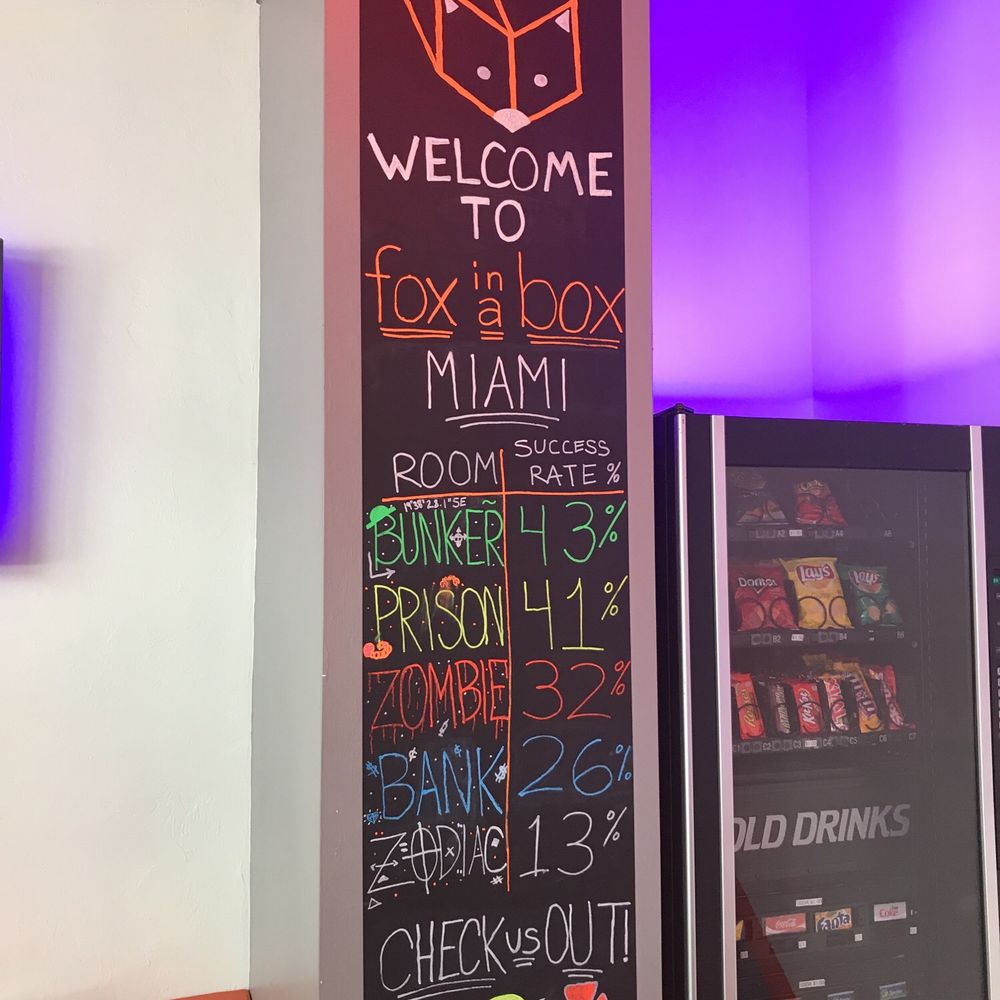 WELCOME
TO
fox in a box
MIAMI
ROOM SUCCESS RATE %
BUNKER 43%
PRISON 41%
ZOMBIE 32%
BANK 26%
ZODIAC 13%
CHECK us OUT!
Doritos
Lay's
Lay's
B2
B4
C2
C3
C4
C5
C6
C7
OLD DRINKS
Coca-Cola
Fanta
Coke